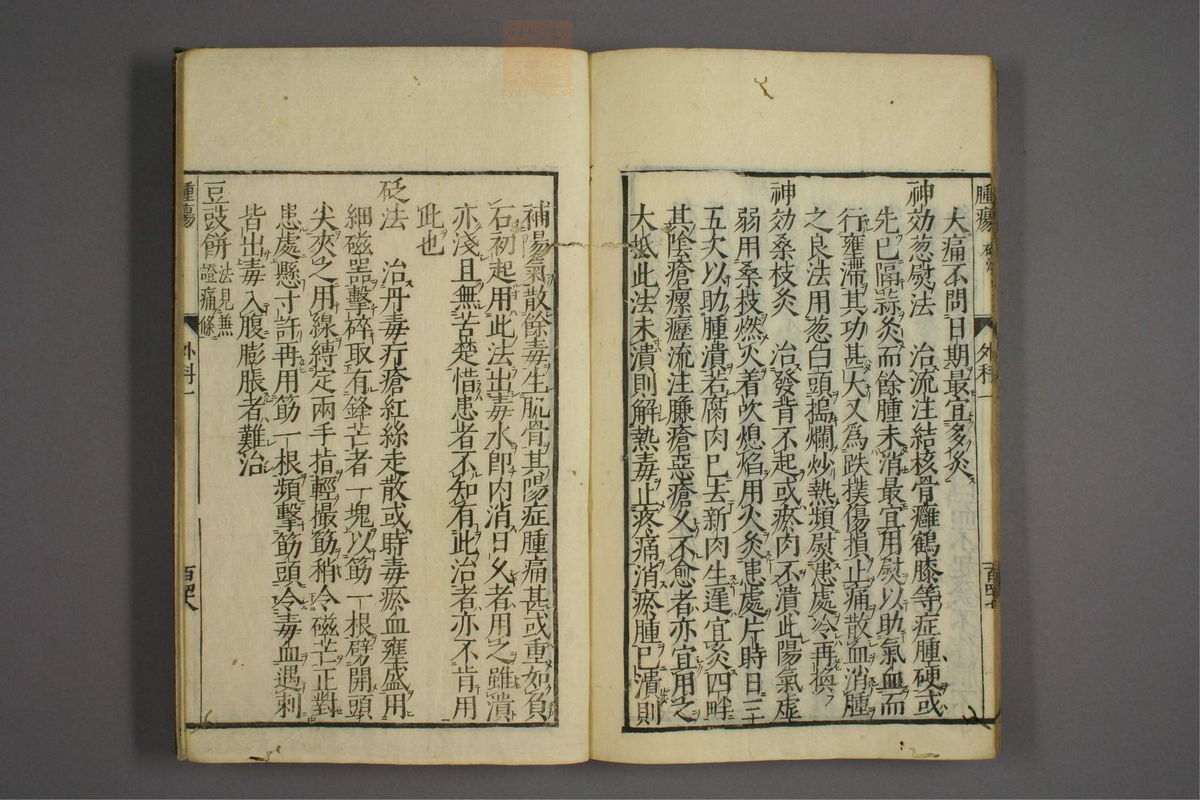 腫瘍 外科一
大痛不問日期最宜多灸
神効葱熨法 治流注結核骨癰鶴膝等症腫硬或
先已隔蒜灸而餘腫未消最宜用熨以助氣血而
行壅滯其功甚大又為跌撲傷損止痛散血消腫
之良法用葱白頭搗爛炒熱頻熨患處冷再換
神効桑枝灸 治發背不起或瘀肉不潰此陽氣虛
弱用桑枝燃火着吹熄焰用火灸患處片時日三
五次以助腫潰若腐肉已去新肉生遲宜灸四畔
其陰瘡瘰癧流注臁瘡惡瘡久不愈者亦宜用之
大抵此法未潰則解熱毒止疼痛消瘀腫已潰則
補陽氣散餘毒生肌骨其陽症腫痛甚或重如負
石初起用此法出毒水即內消日久者用之雖潰
亦淺且無苦楚惜患者不知有此治者亦不肯用
此也
砭法 治丹毒疔瘡紅絲走散或時毒瘀血壅盛用
細磁器擊碎取有鋒芒者一塊以筋一根劈開頭
尖夾之用線縛定兩手指輕撮筋稍令磁芒正對
患處懸寸許再用筋一根頻擊筋頭令毒血遇刺
皆出毒入腹膨脹者難治
豆豉餅 法見無證痛條
腫瘍 外科一